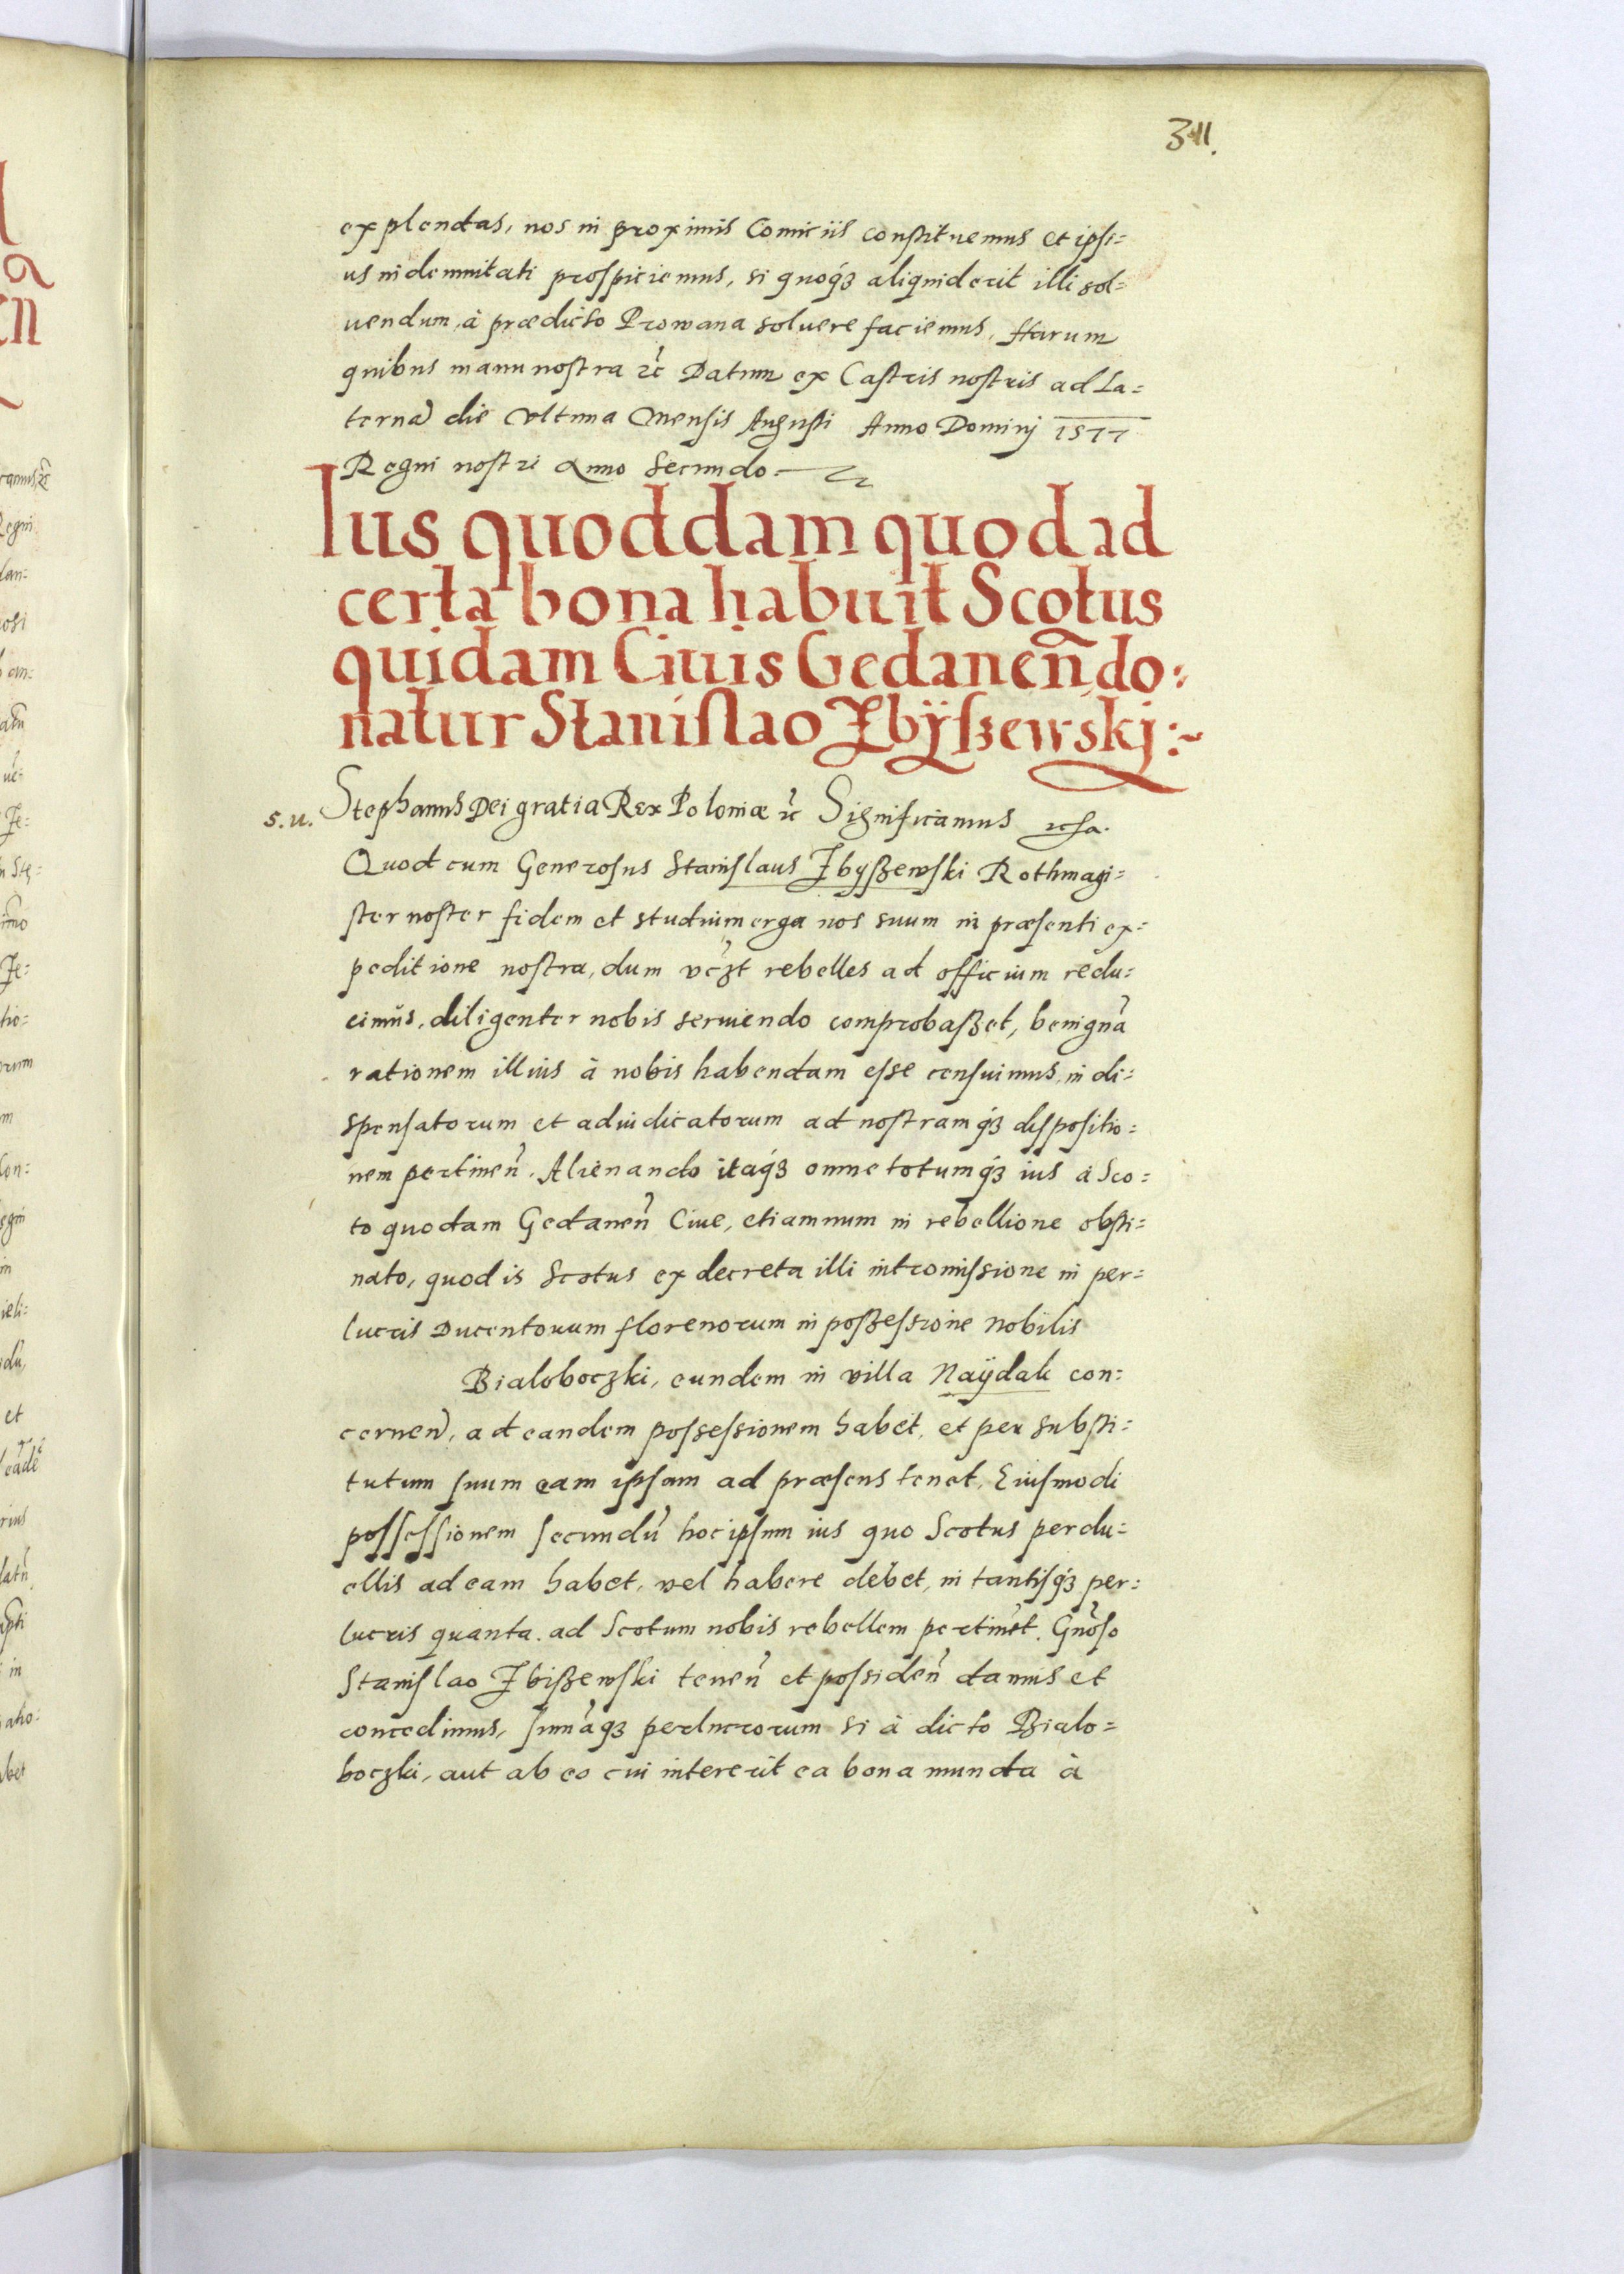 311.
explendas, nos in proximis Comiciis constituemus et ipsi=
us indemnitati prospiciemus, si quoq́ꝫ aliquid erit illi sol=
uendum, à prædicto Prowana soluere faciemus. Harum
quibus manu nostra ꝛc̃ Datum ex Castris nostris ad La=
terna) die vltima Mensis Augusti Anno Dominj 1577
Regni nostri Anno Secundo.
Ius quoddam quod ad
certa bona habuit Scotus
quidam Ciuis Gedanen̄ do:
natur Stanislao Zbÿszewskj:~
s. u. Stephanus Dei gratia Rex Poloniæ ꝛc̃ Significamus ꝛcsa.
Quod cum Generosus Stanislaus Zbyszewski Rothmagi=
ster noster fidem et studium erga nos suum in præsenti ex=
peditione nostra, dum vcꝫt rebelles ad officium redu=
cimus, diligenter nobis seruiendo comprobaszet, benignã
rationem illius à nobis habendam esse censuimus, in di=
spensatorum et adiudicatorum ad nostramq́ꝫ dispositio=
nem pertinen̄. Alienando itaq́ꝫ omne totumq́ꝫ ius à Sco=
to quodam Gedanen̄ Ciue, etiamnum in rebellione obsti=
nato, quod is Scotus ex decreta illi intromissione in per=
lucris Ducentorum florenorum in poszessione Nobilis
Bialoboczki, eundem in villa Naÿdak con=
cernen), ad eandem possessionem habet, et per substi=
tutum suum eam ipsam ad præsens tenet, Eiusmodi
possessionem secundũ hoc ipsum ius quo Scotus perdu=
ellis ad eam habet, vel habere debet, in tantisq́ꝫ per=
lucris quanta ad Scotum nobis rebellem pertinet. Gnõso
Stanislao Zbiszewski tenen̄ et possiden̄ damus et
concedimus, sum̃aqꝫ perlucrorum si à dicto Bialo=
boczki, aut ab eo cui intererit ea bona munda à